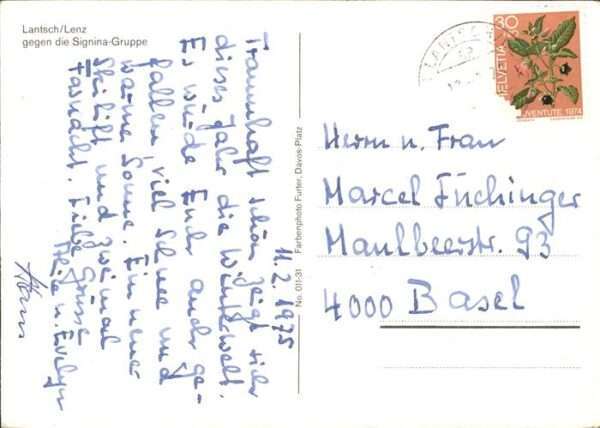 Lantsch/Lenz
gegen die Signina-Gruppe
11.2.1975
Traumhaft schön zeigt sich
dieses Jahr die Winterwelt.
Es würde Euch auch ge-
fallen, viel Schnee und
warme Sonne. Ein neuer
Skilift und zweimal
Fasnacht. Liebe Grüsse
u. Evelyn
No. 011-31 Farbenphoto Furter, Davos-Platz
30
HELVETIA
JUVENTUTE 1974
Herrn u. Frau
Marcel Füchinger
Maulbeerstr. 93
4000 Basel